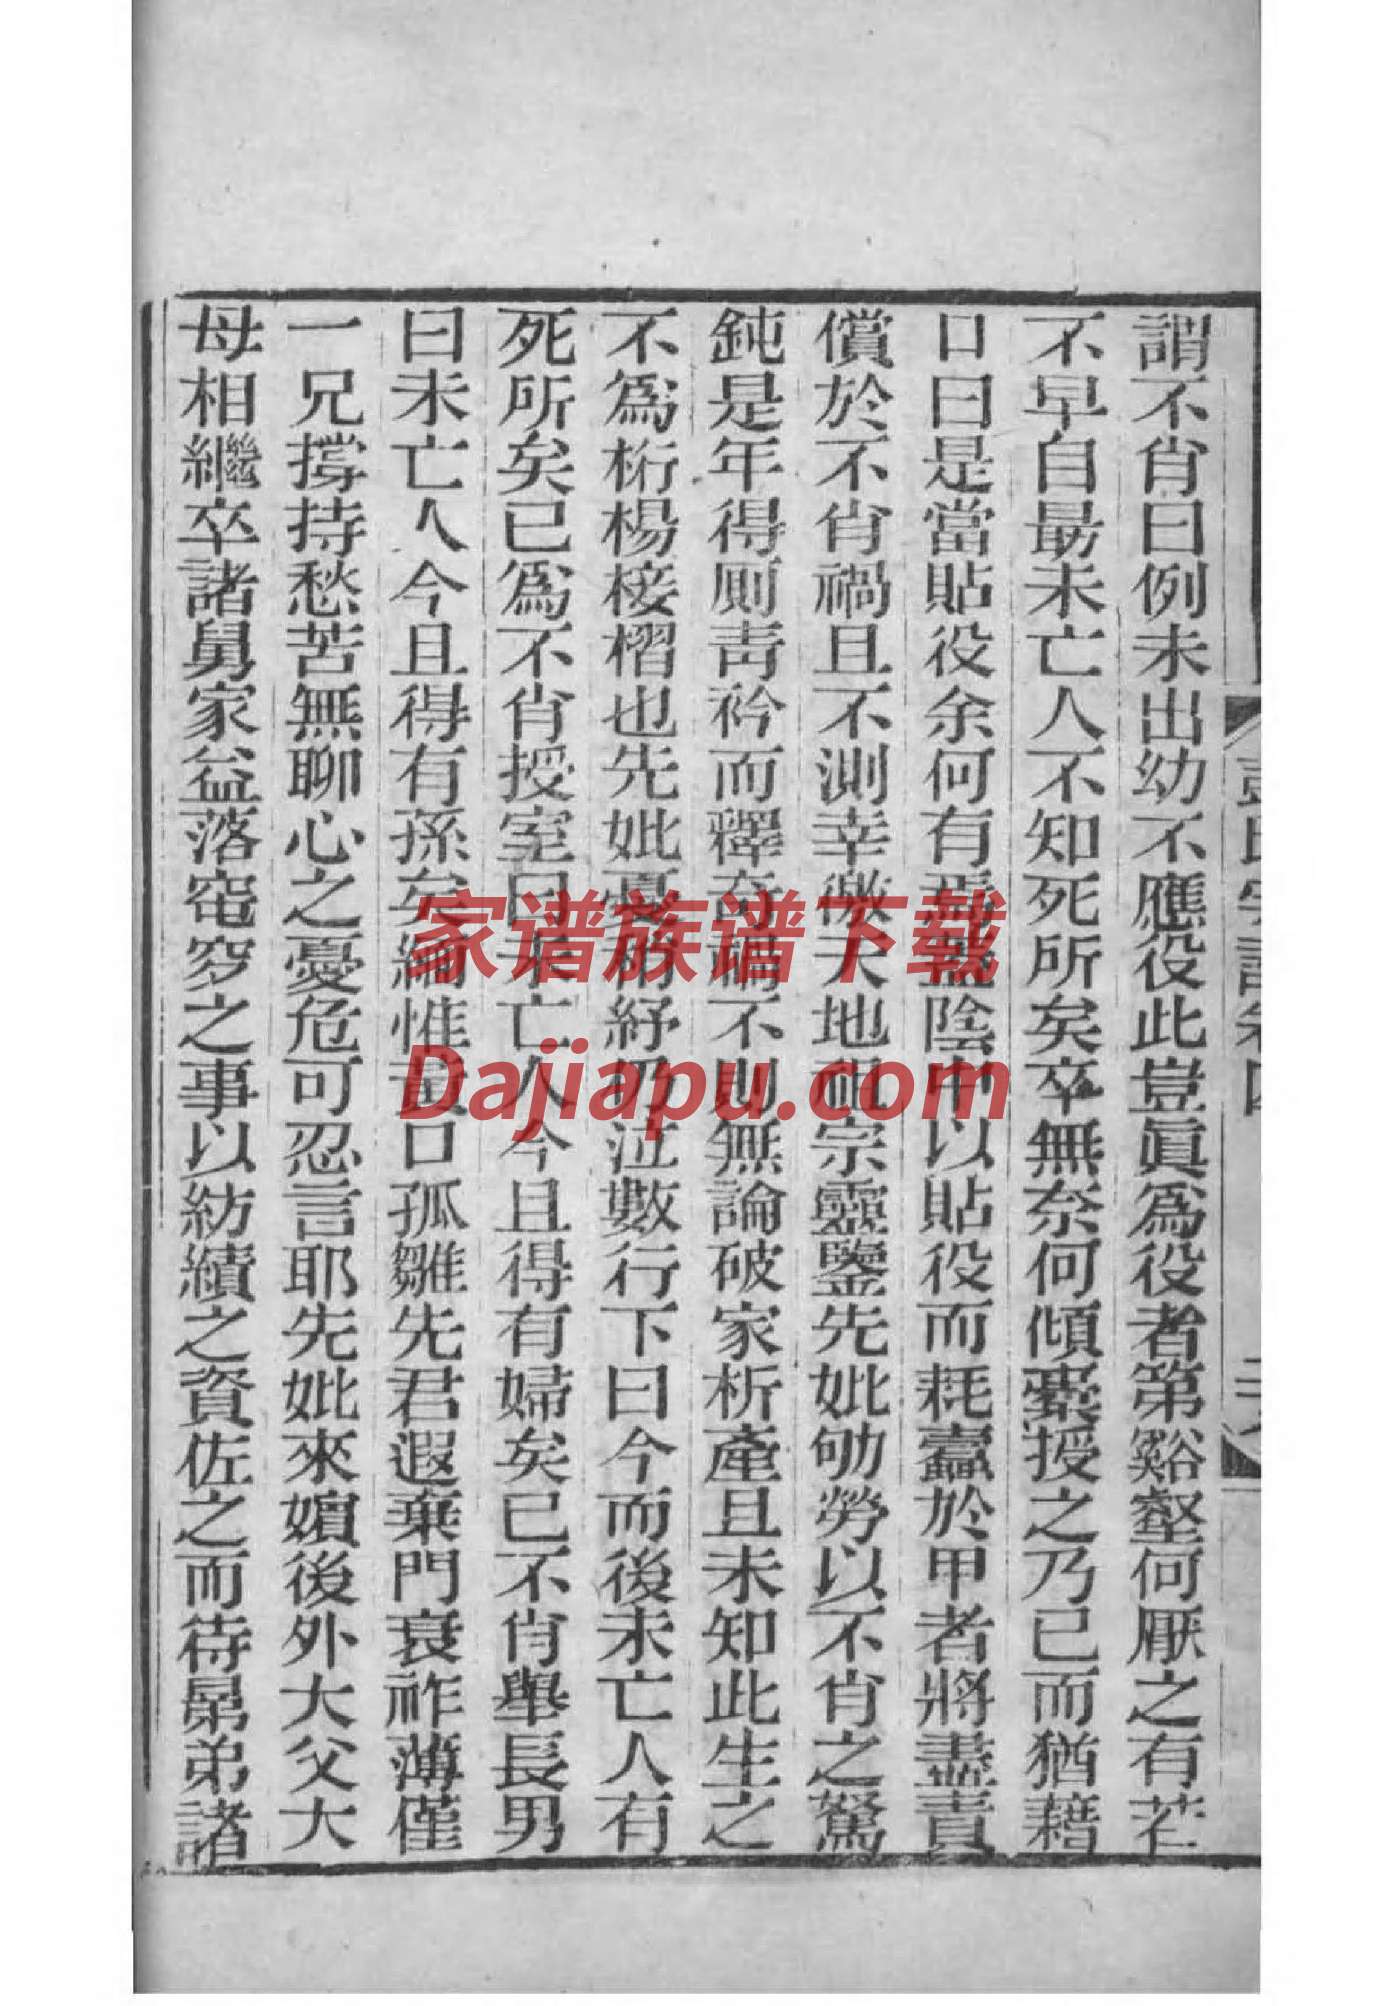 謂不肖曰例未出幼不應役此豈眞爲役者第谿壑何厭之有茫
不早自最未亡人不知死所矣卒無奈何傾橐授之乃已而猶藉
口曰是當貼役余何有焉蓋陰中以貼役而耗蠹於甲者將盡責
償於不肖禍且不測幸徼天地祖宗靈鑒先妣劬勞以不肖之駑
鈍是年得厠靑衿而釋奇禍不則無論破家析產且未知此生之
不爲桁楊椄槢也先妣憂稍紓乃泣數行下曰今而後未亡人有
死所矣已爲不肖授室曰未亡人今且得有婦矣已不肖舉長男
曰未亡人今且得有孫矣緬惟黃口孤雛先君遐棄門衰祚薄僅
一兄撐持愁苦無聊心之憂危可忍言耶先妣來嬪後外大父大
母相繼卒諸舅家益落窀穸之事以紡績之資佐之而待鼐弟諸
家谱族谱下载
Dajiapu.com